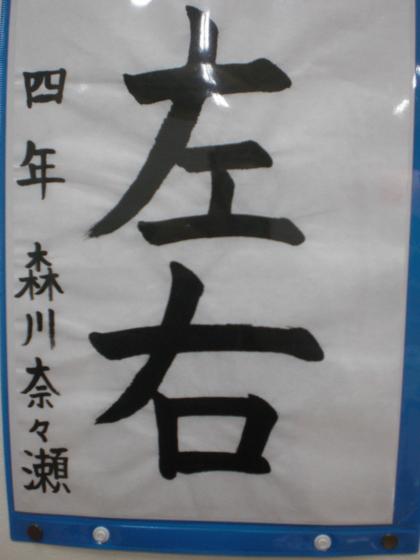 左右
四年 森川奈々瀬